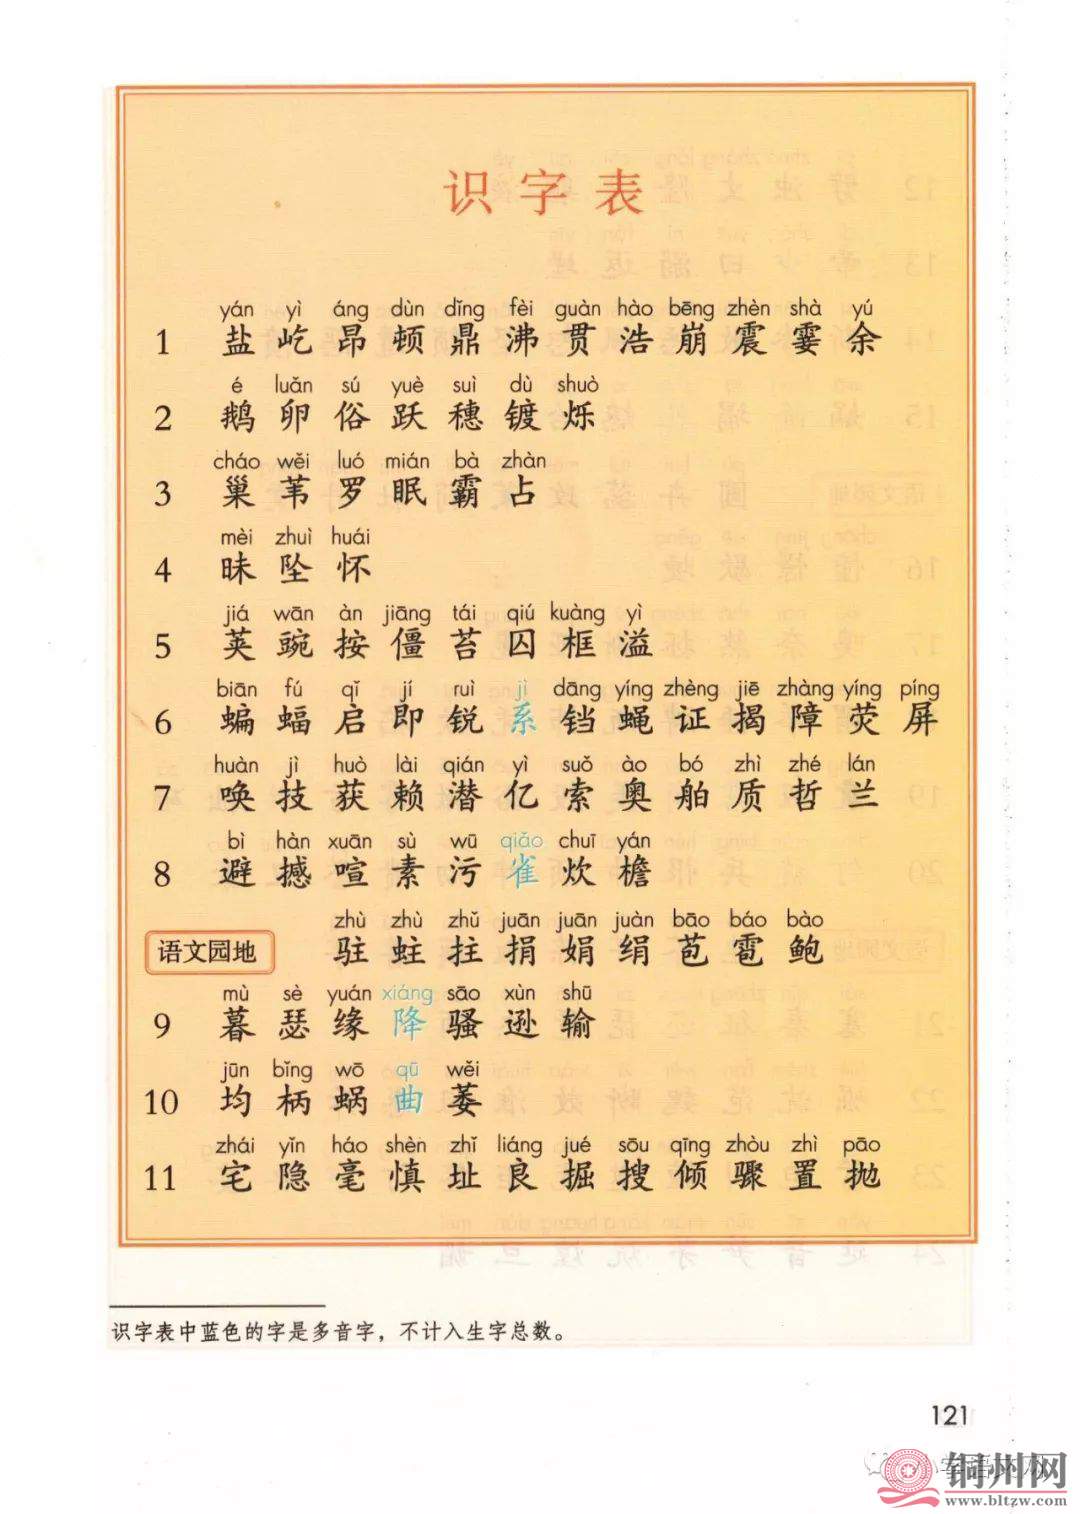 识字表
yán yì áng dùn dǐng fèi guàn hào bēng zhèn shà yú
1 盐 屹 昂 顿 鼎 沸 贯 浩 崩 震 霎 余
é luǎn sú yuè suì dù shuò
2 鹅 卵 俗 跃 穗 镀 烁
cháo wěi luó mián bà zhàn
3 巢 苇 罗 眠 霸 占
mèi zhuì huái
4 昧 坠 怀
jiá wān àn jiāng tái qiú kuàng yì
5 荚 豌 按 僵 苔 囚 框 溢
biān fú qǐ jí ruì jì dāng yíng zhèng jiē zhàng yíng píng
6 蝙 蝠 启 即 锐 系 铛 蝇 证 揭 障 荧 屏
huàn jì huò lài qián yì suǒ ào bó zhì zhé lán
7 唤 技 获 赖 潜 亿 索 奥 舶 质 哲 兰
bì hàn xuān sù wū qiǎo chuī yán
8 避 撼 喧 素 污 雀 炊 檐
zhù zhù zhǔ juān juān juàn bāo báo bào
语文园地 驻 蛀 拄 捐 娟 绢 苞 雹 鲍
mù sè yuán xiáng sāo xùn shū
9 暮 瑟 缘 降 骚 逊 输
jūn bǐng wō qū wěi
10 均 柄 蜗 曲 萎
zhái yǐn háo shèn zhǐ liáng jué sōu qīng zhòu zhì pāo
11 宅 隐 毫 慎 址 良 掘 搜 倾 骤 置 抛
识字表中蓝色的字是多音字，不计入生字总数。
121
铜州网
www.bltzw.com